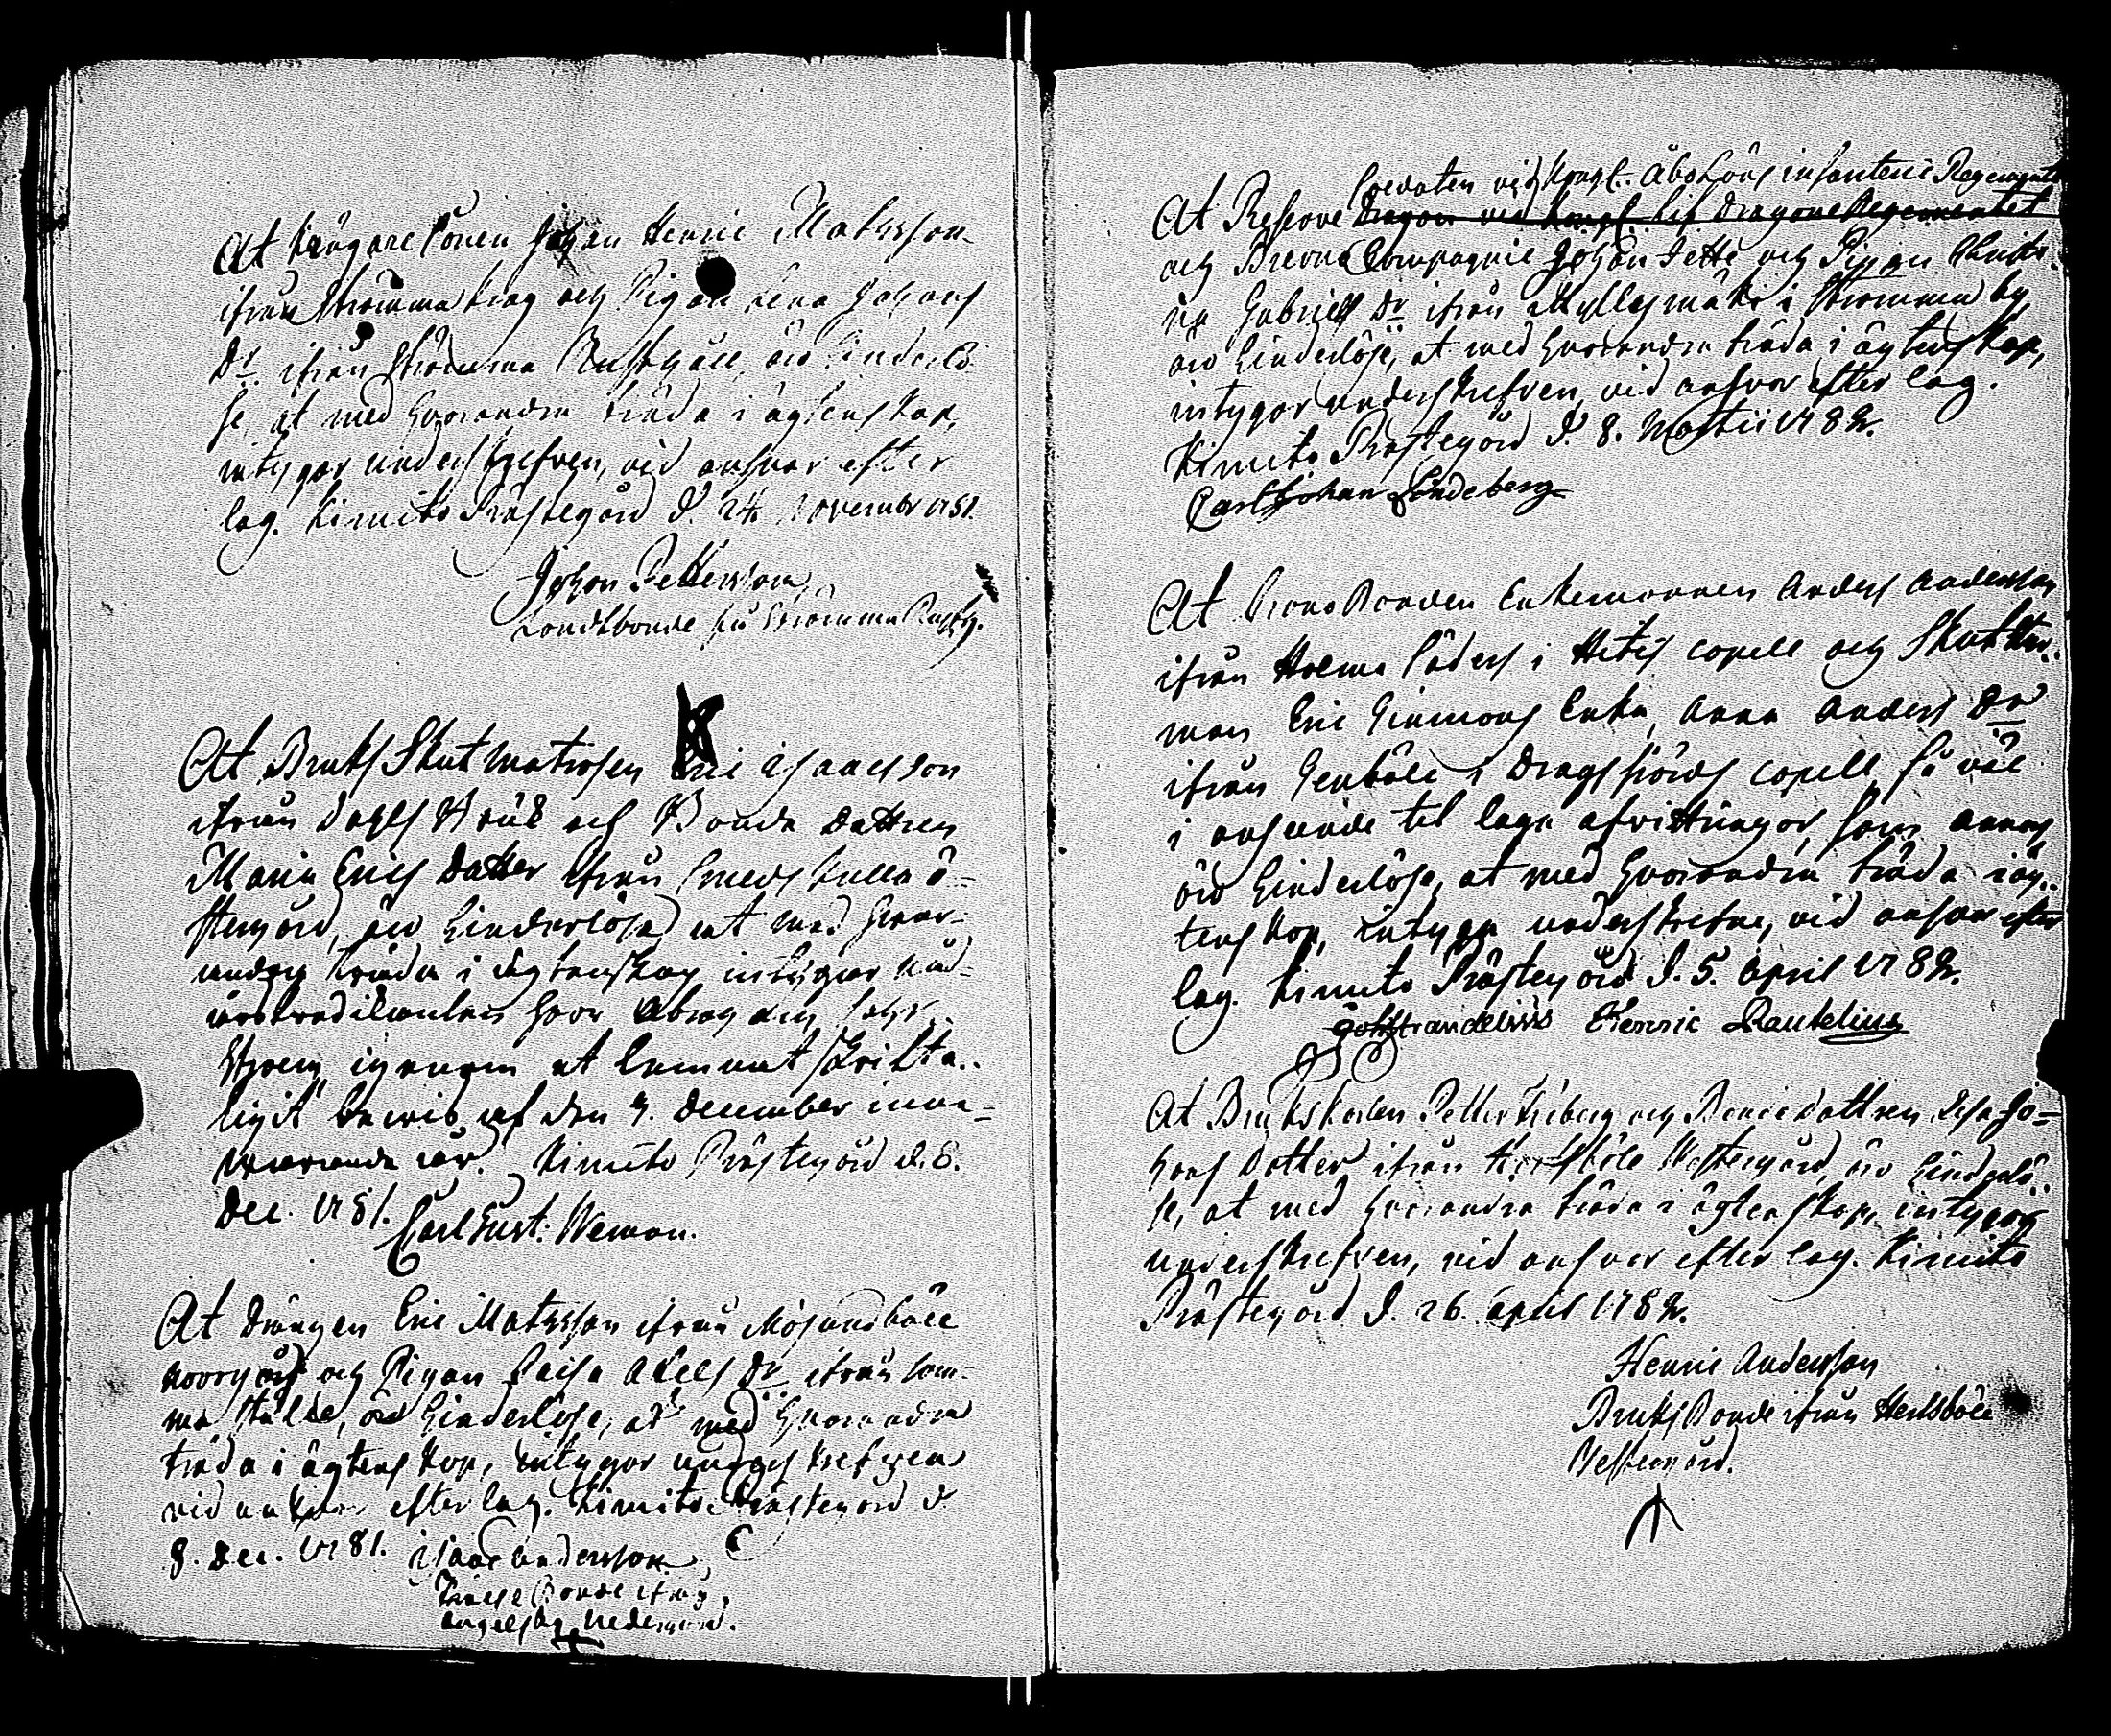 At krögare sonen Johan Henric Matsson
ifrån Strömma krog och Pigan Lena Johans
Dr. ifrån Strömma Rusthåll, äro hinderlö-
se, at med hvarandra träda i ägtenskap,
intygar underskrefven, vid answar efter
lag. Kimito Prästegård d. 24. November 1781.
Johan Pettersson
Landtbonde på Strömma Rusth.
At Bruks Skut Matrosen Eric Isaacsson
ifrån Dahls Bruk och Bonde dottren
Maria Erics Dotter ifrån Smedskulla ö-
stergård, äro hinderlösa at med hvar-
andra träda i ägtenskap intygar
herr Abraham
igenom at lemnat skrifte-
ligit bewis af den 7. December inne-
warande år. Kimito Prästegård d. 8.
Dec. 1781. Carl Gust: Neman.
At drängen Eric Matsson ifrån Mjösundböle
norrgård och Pigan Caisa Axels Dr. ifrån sam-
ma ställe, äro hinderlöse, at med hvarandra
träda i ägtenskap, intygar underskrefven
vid answar efter lag. Kimito Prästegård d.
8. Dec. 1781. Isaac Andersson
Bonde ifrån
Engelsby Nedergård.
Soldaten vid Kongl. Åbo Läns infanterie Regemente
At Reserve Dragon vid Kongl. Lif Dragone Regementet
och Compagnie Johan Jette och Pigan Christi-
na Gabriels Dr. ifrån Myllymäki i Strömma by
äro hinderlöse, at med hvarandra träda i ägtenskap,
intygar underskrefven, vid answar efter lag.
Kimito Prästegård d. 8. Martii 1782.
Carl Johan Lindeberg
At Crono Bonden Enkemannen Anders Andersson
ifrån Holma Söders i Hitis capell och Skatte-
man Eric Hinmans Enka, Anna Anders Dr
ifrån Genböle i Dragsfjärds capell, så väl
i anseende til laga afvittringar, som annars
äro hinderlöse, at med hvarandra träda i äg-
tenskap, intyga underskrefne, vid answar efter
lag. Kimito Prästegård d. 5. April 1782.
Joh. Strandelius Henric Rautelius
At Brukskarlen Petter Friberg och Bonde dottren Lisa Jo-
hans dotter ifrån Hertsböle Westergård, äro hinderlö-
se, at med hvarandra träda i ägtenskap, intygar
underskrefven, vid answar efter lag. Kimito
Prästegård d. 26. April 1782.
Henric Andersson
Bruks Bonde ifrån Hertsböle
Westergård.